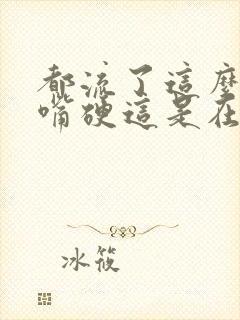 都流了這麼
嘴硬這是在
冰筱